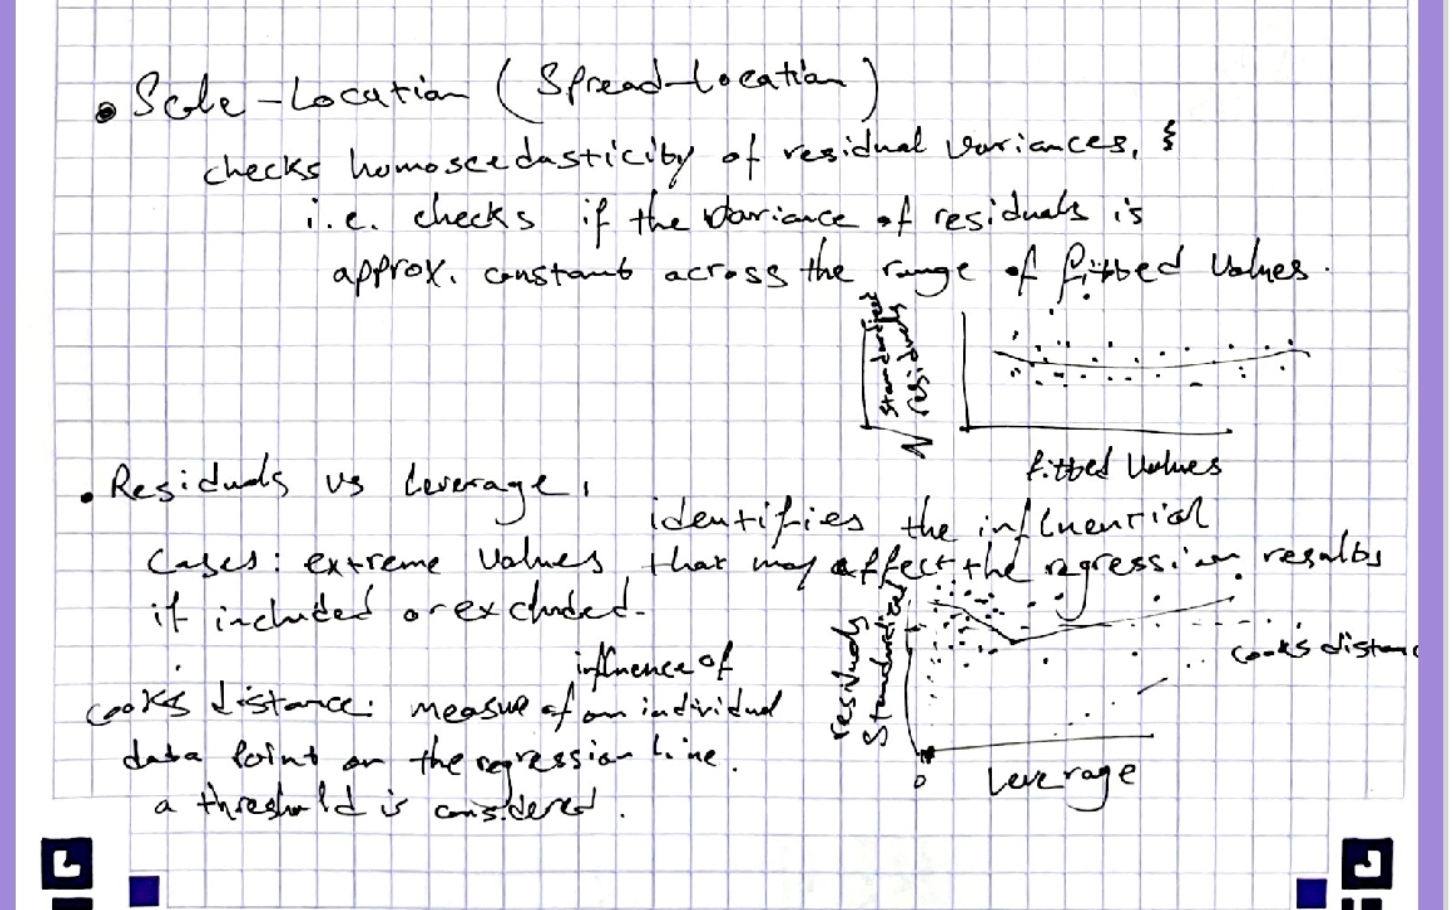 • Scale-Location (Spread-Location)
checks homoscedasticity of residual variances, &
i.e. checks if the variance of residuals is
approx. constant across the range of fitted values.
√ standardized residuals
fitted values
• Residuals vs leverage,
identifies the influential
cases: extreme values that may affect the regression results
if included or excluded.
influence of
cook's distance: measure of an individual
data point on the regression line.
a threshold is considered.
residuals
Standardized
cook's distanc
0
leverage